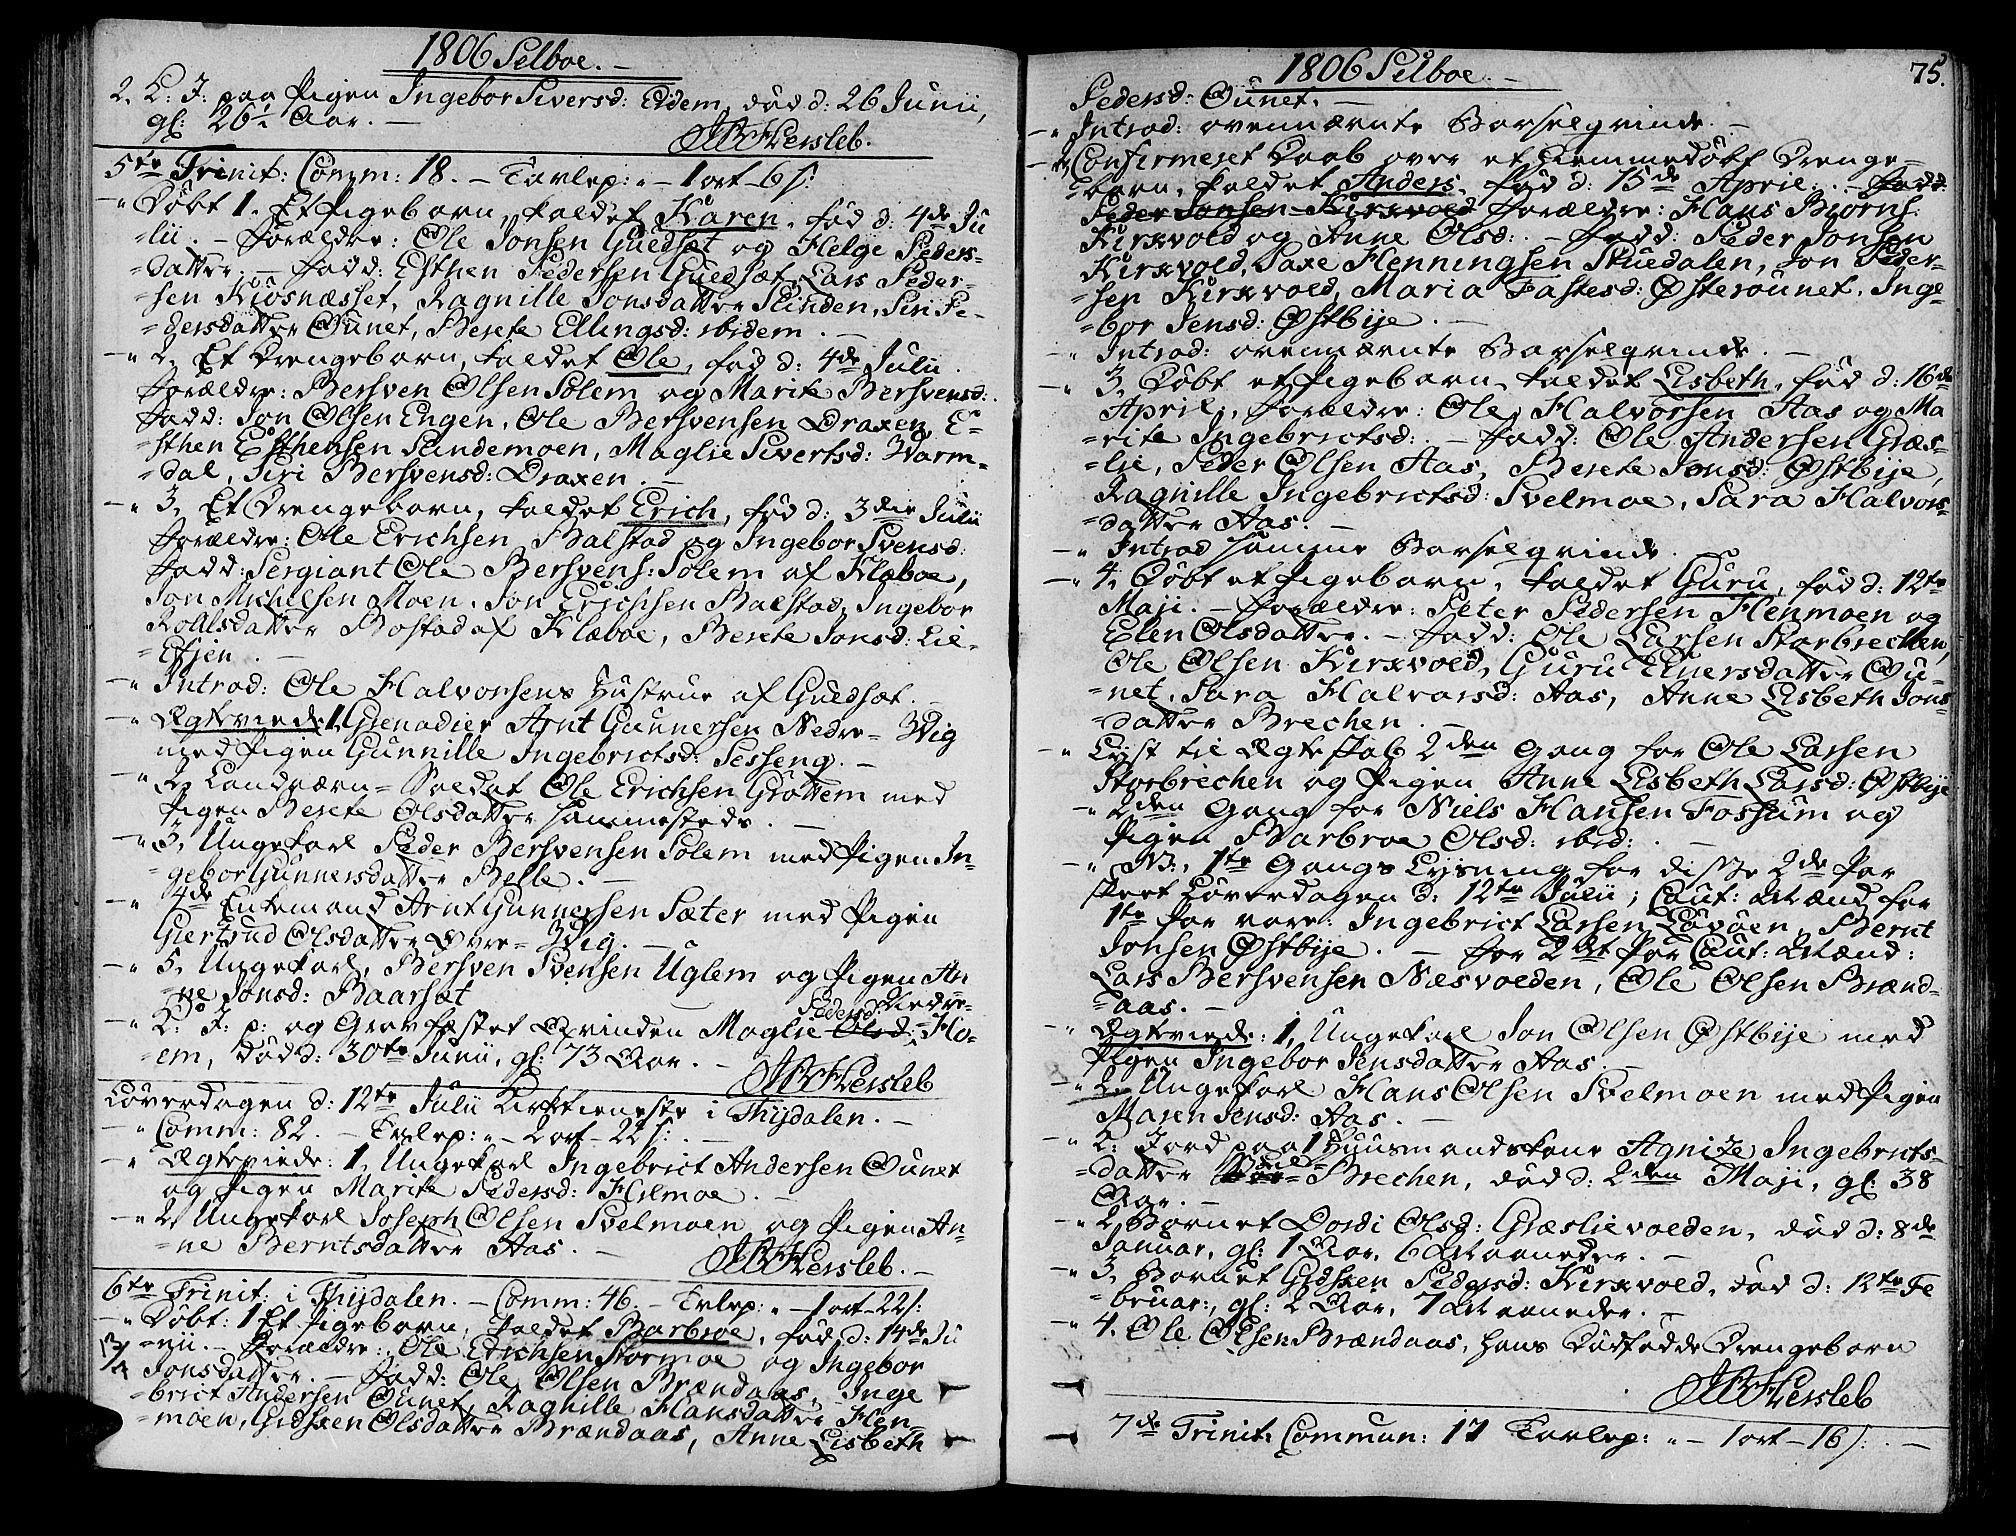 1806 Selboe. –
2. L: J: paa Pigen Ingebor Siversd: Eidem, död d: 26 Junii,
gl: 26½ Aar. –
JBHersleb.
5te Trinit: Comm: 18. – Tavlep: „ – 1 ort – 6 s:
– „ Döbt 1. Et Pigebarn, kaldet Karen, föd d: 4de Ju
=lii. – Forældre: Ole Jonsen Guldsæt og Helge Peders-
=datter. – Fadd: Esthen Pedersen Guldsæt, Lars Peder-
=sen Kiösnæsset, Ragnille Jonsdatter Slinden, Siri Pe-
=dersdatter Ounet, Berete Ellingsd: ibidem. –
– „ 2, Et Drengebarn, kaldet Ole, föd d: 4de Julii.
Forældre: Bersven Olsen Solem og Marite Bersvensd:
Fadd: Jon Olsen Engen, Ole Bersvensen Draxen, E-
=sthen Esthensen Slindemoen, Maglie Sivertsd: Warm-
=dal, Siri Bersvensd: Draxen. –
– „ 3, Et Drengebarn, kaldet Erich, föd d: 3die Julii
Forældre: Ole Erichsen Balstad og Ingebor Svensd:
Fadd: Sergiant Ole Bersvens: Solem af Klæboe,
Jon Michelsen Moen, Jon Erichsen Balstad, Ingebor
Rollsdatter Bostad af Klæboe, Berete Jonsd: Lie-
=Etjen. –
– „ Introd: Ole Halvorsens Hustrue af Guldsæt. –
– „ Ægteviede: 1, Grenadier Arnt Gunnersen Nedre= Wig
med Pigen Gunnille Ingebrictsd: Sesseng. –
– „ 2, Landværn=Soldat Ole Erichsen Grøttem med
Pigen Berete Olsdatter sammesteds. –
– „ 3, Ungekarl Peder Bersvensen Solem med Pigen In-
=gebor Gunnersdatter Belle. –
– „ 4de Enkemand Arnt Gunnersen Sæter med Pigen
Giertrud Olsdatter Övre= Wig. –
– „ 5, Ungekarl, Bersven Svensen Uglem og Pigen An
=ne Jonsd: Baarsæt –
Pedersd: Nedre-
– „ L: J: p: og Gravfæstet Qvinden Maglie Olsd: Mo-
=em, död d: 30te Junii, gl: 73 Aar. –
JBHersleb
Löverdagen d: 12te Julii Kirketieneste i Thydalen. –
– „ Comm: 82. – Tavlep: „ – 2 ort – 22 s: –
– „ Ægteviede: 1, Ungekarl Ingebrict Andersen Ounet
og Pigen Marite Pedersd: Hilmoe. –
– „ 2, Ungekarl Joseph Olsen Svelmoen og Pigen An-
=ne Berntsdatter Aas. –
JBHersleb. –
6te Trinit: i Thydalen. – Comm: 46. – Tavlep: „ – 1 ort – 22 s:
– „ Döbt: 1 Et Pigebarn, kaldet Barbroe, föd d: 14de Ju
13/7
=nii. – Forældre: Ole Erichsen Stormoe og Ingebor
Jonsdatter. – Fadd: Ole Olsen Brændaas, Inge
=brict Andersen Ounet, Ragnille Hansdatter Hen-
=moen, Gidsken Olsdatter Brændaas, Anne Lisbeth
1806 Selboe. –
75.
Pedersd: Ounet. –
– „ Introd: ovennævnte Barselqvinde. –
– „ 2, Confirmeret Daab over et hiemmedöbt Drenge-
=barn, kaldet Anders, föd d: 15de April. – Fadd:
Peder Jonsen Kirkvold Forældre: Hans Biörns:
Kirkvold og Anne Olsd: – Fadd: Peder Jonsen
Kirkvold, Saxe Henningsen Stuedalen, Jon Peder-
=sen Kirkvold, Maria Fastesd: Østerounet, Inge-
=bor Jensd: Østbije. –
– „ Introd: ovennævnte Barselqvinde. –
– „ 3, Döbt et Pigebarn, kaldet Lisbeth, föd d: 16de
April, Forældre: Ole Halvorsen Aas og Ma
=rite Ingebrictsd: – Fadd: Ole Andersen Græs-
=lie, Peder Olsen Aas, Berete Jonsd: Østbije,
Ragnille Ingebrictsd: Svelmoe, Sara Halvors-
=datter Aas. –
– „ Introd samme Barselqvinde.
– „ 4, Döbt et Pigebarn, kaldet Guru, föd d: 12te
Maji. – Forældre: Peter Pedersen Henmoen og
Elen Olsdatter. – Fadd: Ole Larsen Storbrechen,
Ole Olsen Kirkvold, Guru Einersdatter Ou-
=net, Sara Halvorsd: Aas, Anne Lisbeth Jons-
=datter Brechen. –
– „ Lyst til Ægteskab 2den Gang for Ole Larsen
Storbrechen og Pigen Anne Lisbeth Larsd: Østbije
– „ 2den Gang for Niels Hansen Fossum og
Pigen Barbroe Olsd: ibid: –
– „ NB: 1te Gangs Lysning for disse 2de Par
skeet Löverdagen d: 12te Julii; Caut: Mænd for
1te Par vare: Ingebrict Larsen Lövöen, Bernt
Jonsen Østbije. – For 2det Par Caut: Mænd:
Lars Bersvensen Næsvolden, Ole Olsen Brænd-
=aas. –
– „ Ægteviede: 1, Ungekarl Jon Olsen Østbije med
Pigen Ingebor Jensdatter Aas. –
– „ 2, Ungekarl Hans Olsen Svelmoen med Pigen
Maren Jensd: Aas. –
– „ L: Jord paa 1 Huusmandskone Agnite Ingebricts-
=datter Lille= Brechen, död d: 2den Maji, gl: 38
Aar. –
– „ 2 Barnet Dordi Olsd: Græslievolden, död d: 8de
Januar, gl: 1 Aar, 6 Maaneder. –
– „ 3, Barnet Gidsken Pedersd: Kirkvold, död d: 12te Fe
=bruar:, gl: 2 Aar, 7 Maaneder. –
– „ 4. Ole Olsen Brændaas, hans Dödfödde Drengebarn
JBHersleb
7de Trinit: Commun: 17 Tavlep: „ – 1 ort – 16 s: –